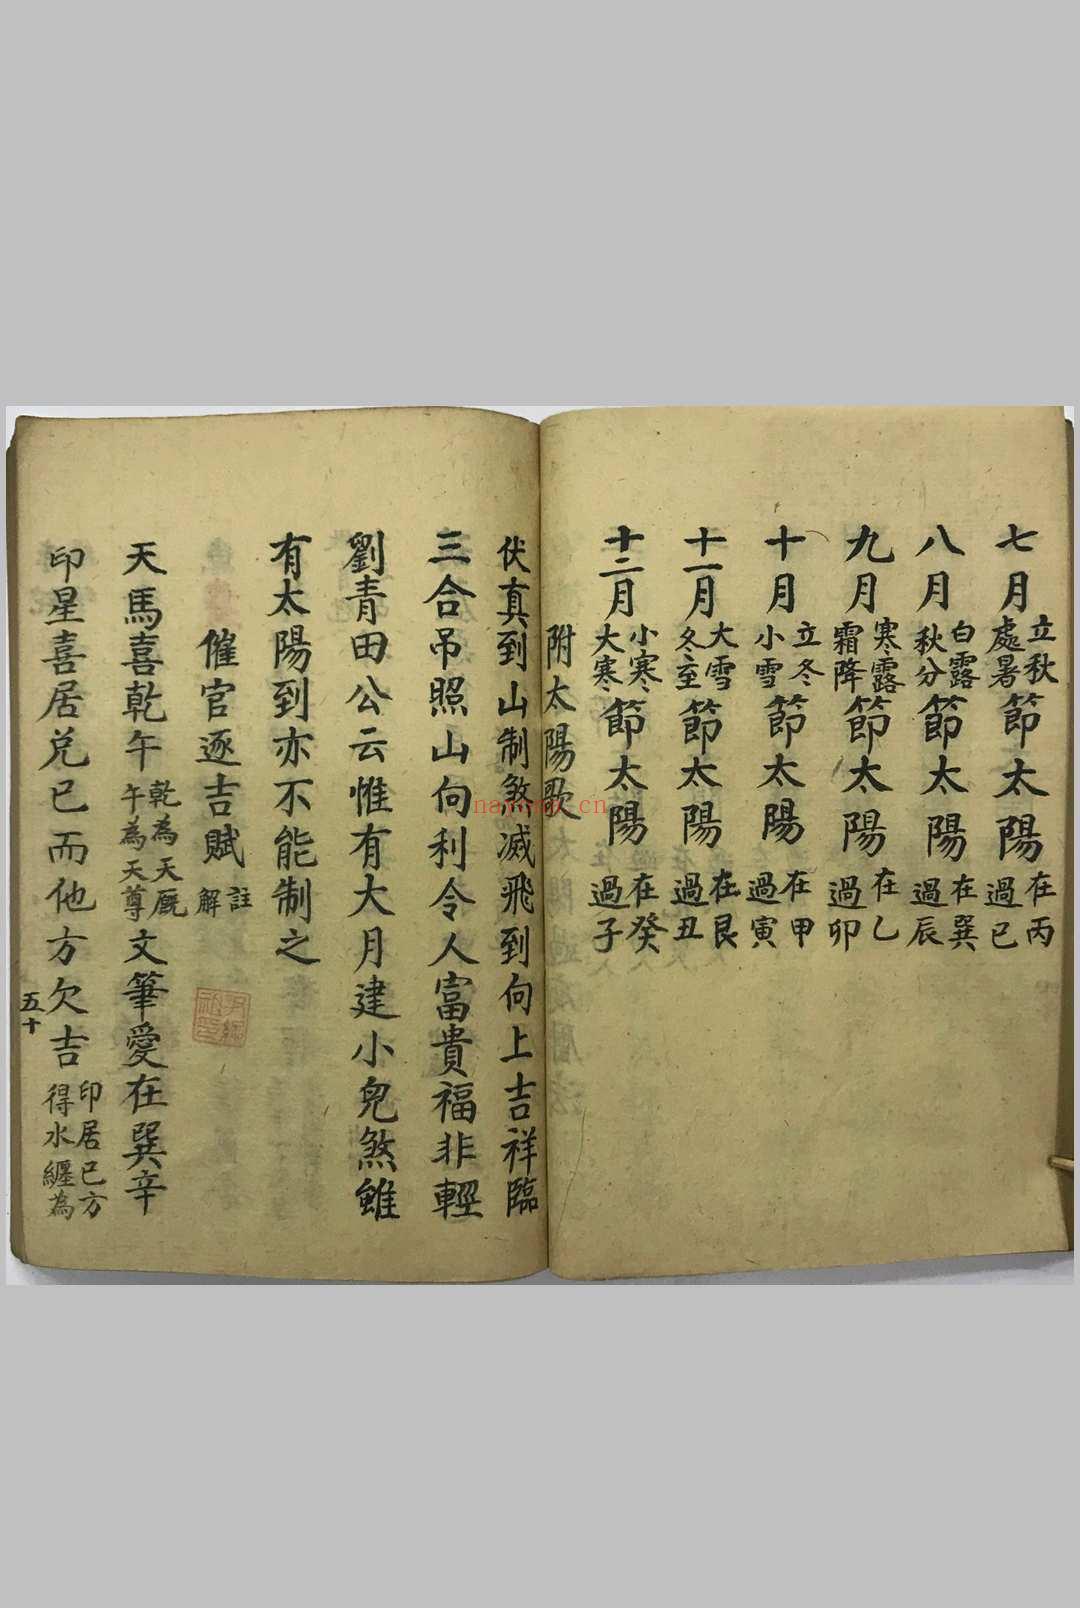 七月立秋處暑節太陽在丙過巳
八月白露秋分節太陽在巽過辰
九月寒露霜降節太陽在乙過卯
十月立冬小雪節太陽在甲過寅
十一月大雪冬至節太陽在艮過丑
十二月小寒大寒節太陽在癸過子
附太陽歌
伏真到山制煞滅飛到向上吉祥臨
三合吊照山向利令人富貴福非輕
劉青田公云惟有大月建小兒煞雖
有太陽到亦不能制之
催官逐吉賦註解
天馬喜乾午乾為天厩午為天尊文筆愛在巽辛
印星喜居兌巳而他方欠吉印居巳方得水纏為
五十
nayona.cn